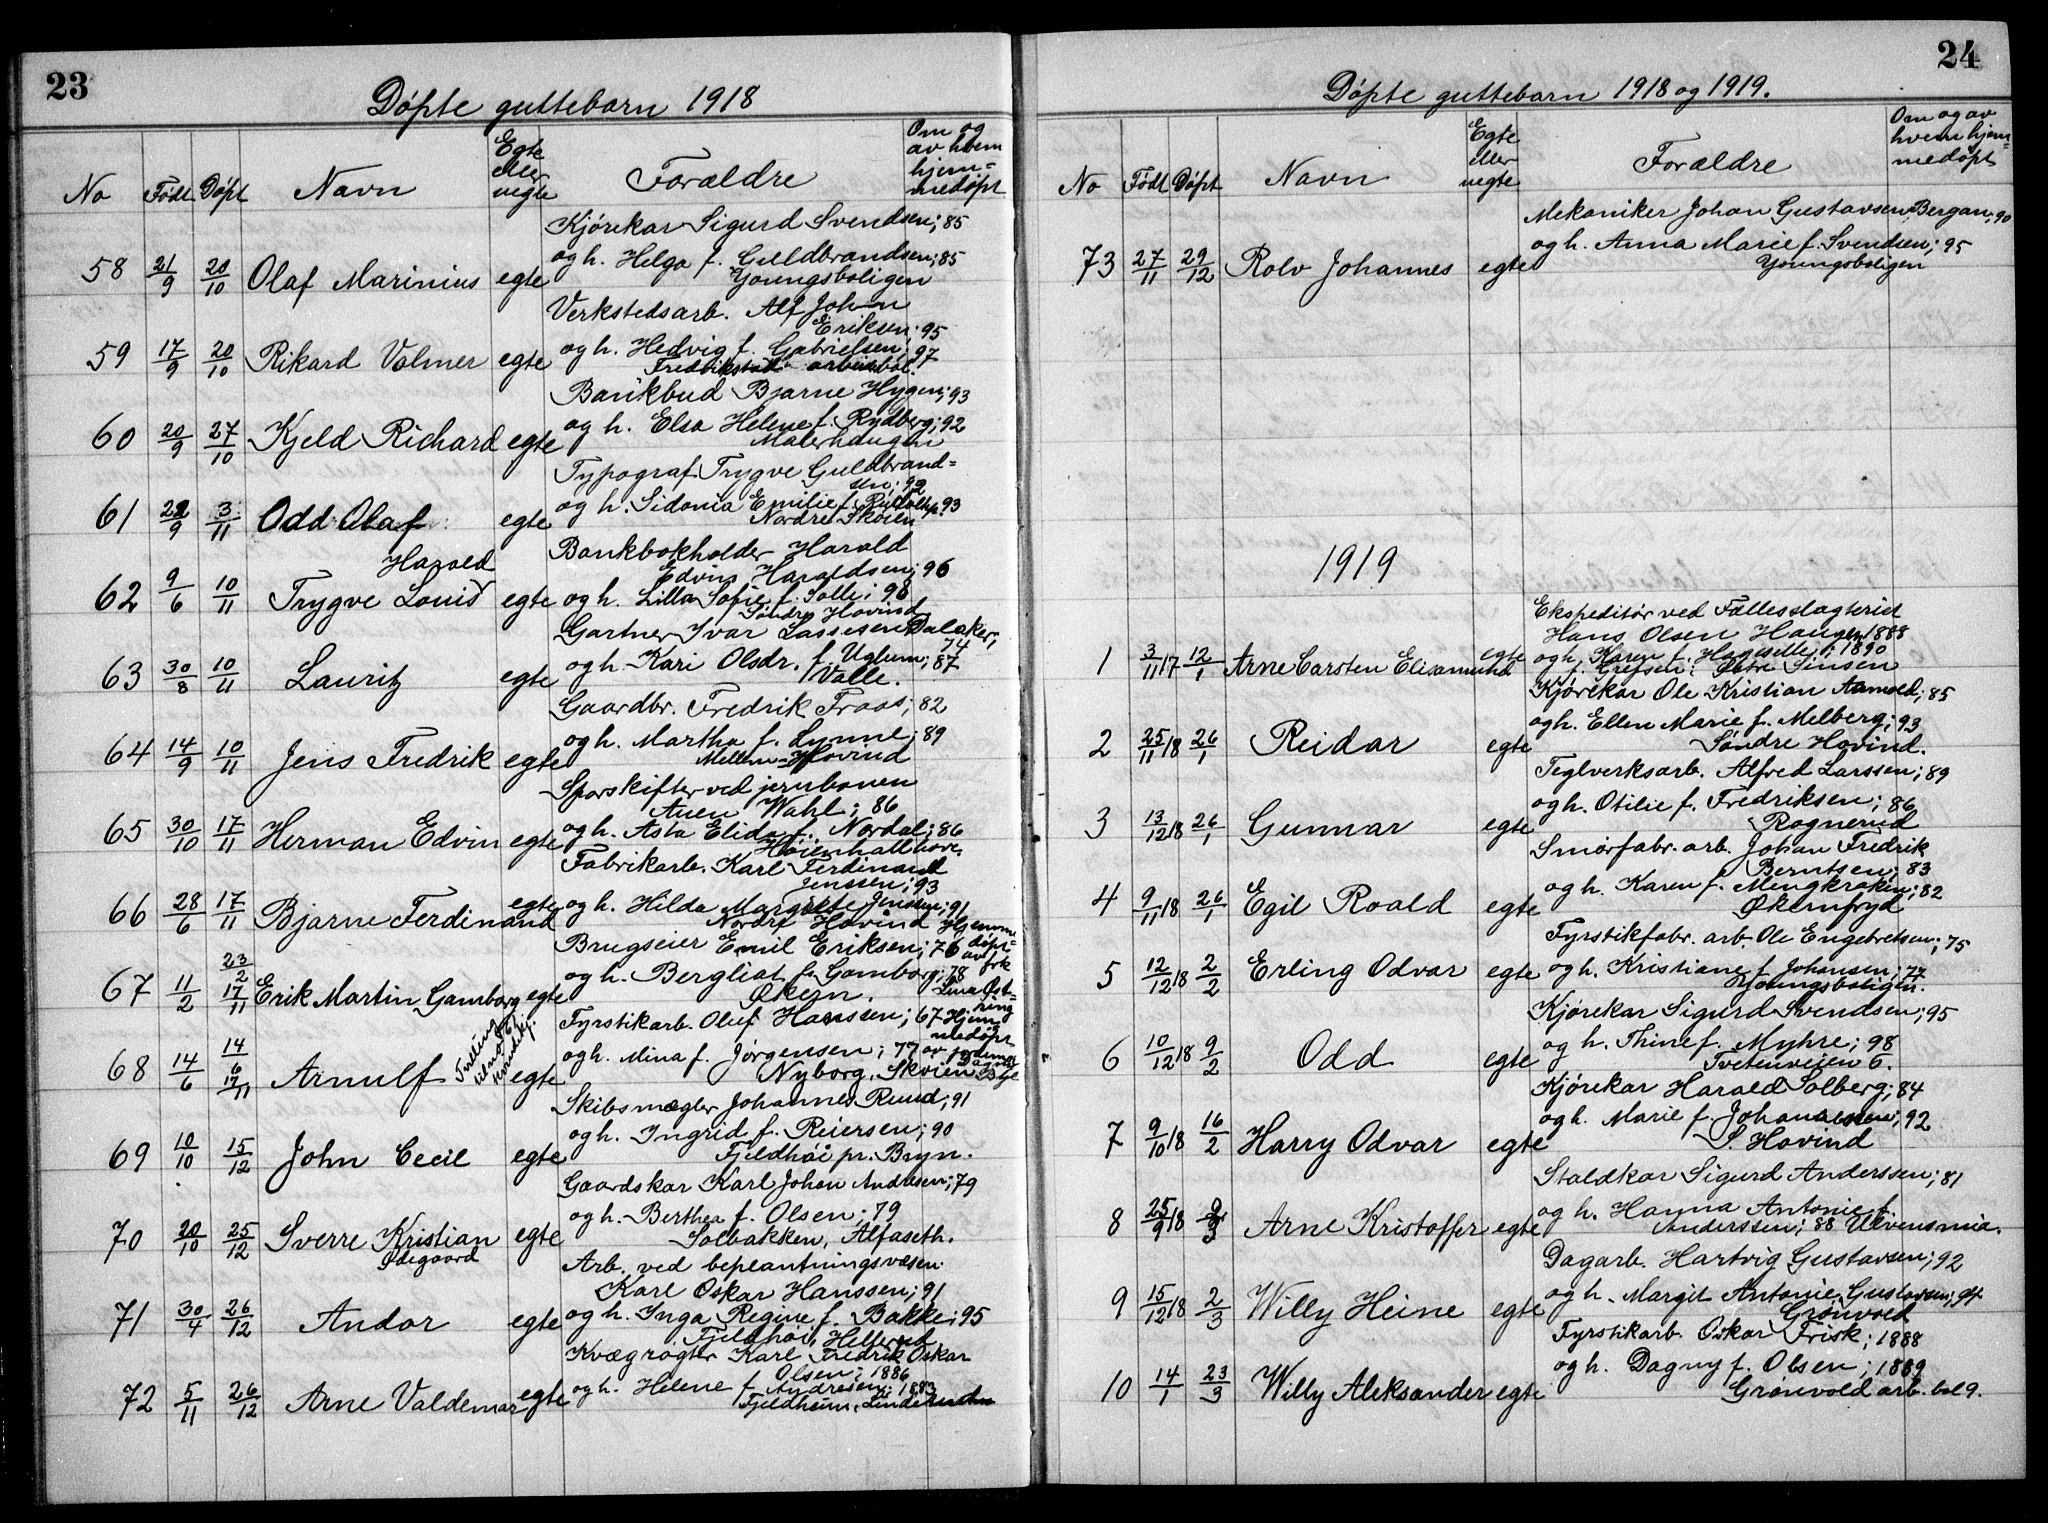 23
Døpte guttebarn 1918
No Født Døpt Navn Egte eller uegte Forældre Om og av hvem hjem=medøpt
Kjørekar Sigurd Svendsen; 85
58 21/9 20/10 Olaf Marinius egte og h. Helga f. Guldbrandsen; 85
Youngsboligen
Verkstedsarb. Alf Johan
Eriksen; 95
59 17/9 20/10 Rikard Volmer egte og h. Hedvig f. Gabrielsen; 97
Fredrikstad arbeiderbol.
Bankbud Bjarne Hygen; 93
60 20/9 27/10 Kjeld Richard egte og h. Elsa Helene f. Rydberg; 92
Malerhaugen
Typograf Trygve Guldbrand=
sen; 92
61 22/9 3/11 Odd Olaf egte og h. Sidonia Emilie f. 93
Nordre Skøien
Bankbokholder Harald
Edvin Haraldsen; 96
62 9/6 10/11 Trygve Louis Harald egte og h. Lilla Sofie f. Solli; 98
Søndre Hovind
Gartner Ivar Lassesen Dalaker,
74
63 30/8 10/11 Lauritz egte og h. Kari Olsdr. f. Uglum; 87
Valle.
Gaardbr. Fredrik Froas; 82
64 14/9 10/11 Jens Fredrik egte og h. Martha f. Lynne; 89
Mellem-Hovind
Sporskifter ved jernbanen
Auen Wahl; 86
65 30/10 17/11 Herman Edvin egte og h. Asta Elida f. Nordal; 86
Høienhallhave.
Fabrikarb. Karl Ferdinand
Jenssen; 93
66 28/6 17/11 Bjarne Ferdinand egte og h. Hilda Margrete Jenssen; 91
Nordre Hovind
Brugseier Emil Eriksen; 76 Hjemme døpt av frk
67 11/2 23/2 17/11 Erik Martin Gamborg egte og h. Bergliot f. Gamborg; 78
Økern. Lina Øst=ring
Fyrstikarb. Oluf Hanssen; 67 Hjem medøpt
68 14/6 14/6 17/11 Arnulf egte og h. Mina f. Jørgensen; 77 av jordmor
Nyborg, Skøien Dagny Bye
Skibsmægler Johannes Ruud; 91
69 10/10 15/12 John Cecil egte og h. Ingrid f. Reiersen; 90
Fjeldhøi pr. Bryn.
Gaardskar Karl Johan Andresen; 79
70 20/10 25/12 Sverre Kristian Ødegaard egte og h. Berthea f. Olsen; 79
Solbakken, Alfaseth.
Arb. ved beplantningsvæsen
Karl Oskar Hanssen; 91
71 30/4 26/12 Andor egte og h. Inga Regine f. Bakke; 95
Fjeldhøi, Hellerud
Kvægrøgter Karl Fredrik Oskar
Olsen; 1886
72 5/11 26/12 Arne Valdemar egte og h. Helene f. Andresen; 1883
Fjeldheim, Linderudm
24
Døpte guttebarn 1918 og 1919.
No Født Døpt Navn Egte eller uegte Forældre Om og av hvem hjem=medøpt
Mekaniker Johan Gustavsen Bergan; 90
73 27/11 29/12 Rolv Johannes egte og h. Anna Marie f. Svendsen; 95
Youngsboligen
1919
Ekspeditør ved Fællesslagteriet
Hans Olsen Haugen, 1888
1 3/11 17 12/1 Arne Carsten Elisamund egte og h. Karen f. Hagiselle; 1890
f. Grefsen; Østre Sinsen
Kjørekar Ole Kristian Aamold; 85
2 25/11 18 26/1 Reidar egte og h. Ellen Marie f. Melberg; 93
Søndre Hovind.
Teglverksarb. Alfred Larssen; 89
3 13/12 18 26/1 Gunnar egte og h. Otilie f. Fredriksen; 86
Rognerud
Smørfabr. arb. Johan Fredrik
Berntsen; 83
4 9/11 18 26/1 Egil Roald egte og h. Karen f. Mengkroken; 82
Økernfryd
Fyrstikfabr. arb. Ole Engebretsen; 75
5 12/12 18 2/2 Erling Odvar egte og h. Kristiane f. Johansen; 77.
Youngsboligen.
Kjørekar Sigurd Svendsen; 95
6 10/12 18 9/2 Odd egte og h. Thine f. Myhre; 98
Tvetenveien 6.
Kjørekar Harald Solberg; 84
7 9/10 18 16/2 Harry Odvar egte og h. Marie f. Johannessen; 92
S. Hovind
Staldkar Sigurd Anderssen; 81
8 25/9 18 2/3 Arne Kristoffer egte og h. Hanna Antonie f.
Anderssen; 88 Ulvensmia.
Dagarb. Hartvig Gustavsen; 92
9 15/12 18 2/3 Willy Heine egte og h. Margit Antonie Gustavsen; 97
Grønvold
Fyrstikarb. Oskar Frisk; 1888
10 14/1 23/3 Willy Aleksander egte og h. Dagny f. Olsen; 1889
Grønvold arb. bol 9.